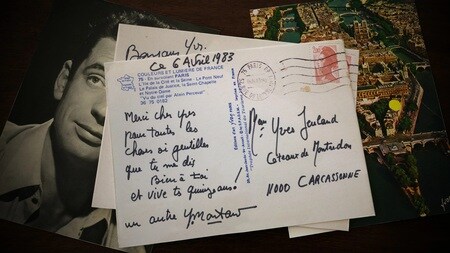 Bonjour Yves.
Ce 6 Avril 1983
COULEURS ET LUMIERE DE FRANCE
75 - En survolant PARIS
L'Ile de la Cité et la Seine - Le Pont Neuf
Le Palais de Justice, la Sainte-Chapelle
et Notre-Dame
"Vu du ciel par Alain Perceval"
36 75 0182
Merci cher Yves
pour toutes les
choses si gentilles
que tu me dis
Bien à toi
et vive tes quinze ans!
un autre Y. Montand
Yves
Coteaux de
11000 CARCASSONNE